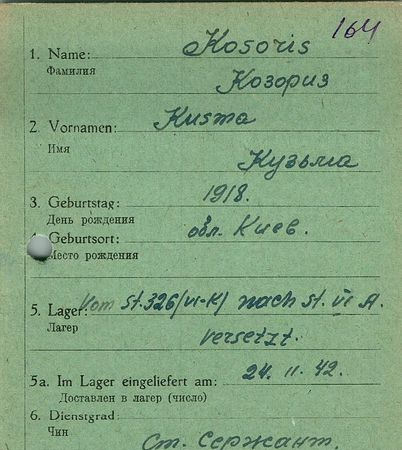 164
1. Name: Kosoris
Фамилия
Козориз
2. Vornamen: Kusma
Имя
Кузьма
3. Geburtstag: 1918.
День рождения
4. Geburtsort: обл. Киев.
Место рождения
5. Lager: Vom St. 326 (VI-K) nach St. VI A.
Лагер
versetzt.
5a. Im Lager eingeliefert am: 24. 11. 42.
Доставлен в лагер (число)
6. Dienstgrad:
Чин
Ст. Сержант.